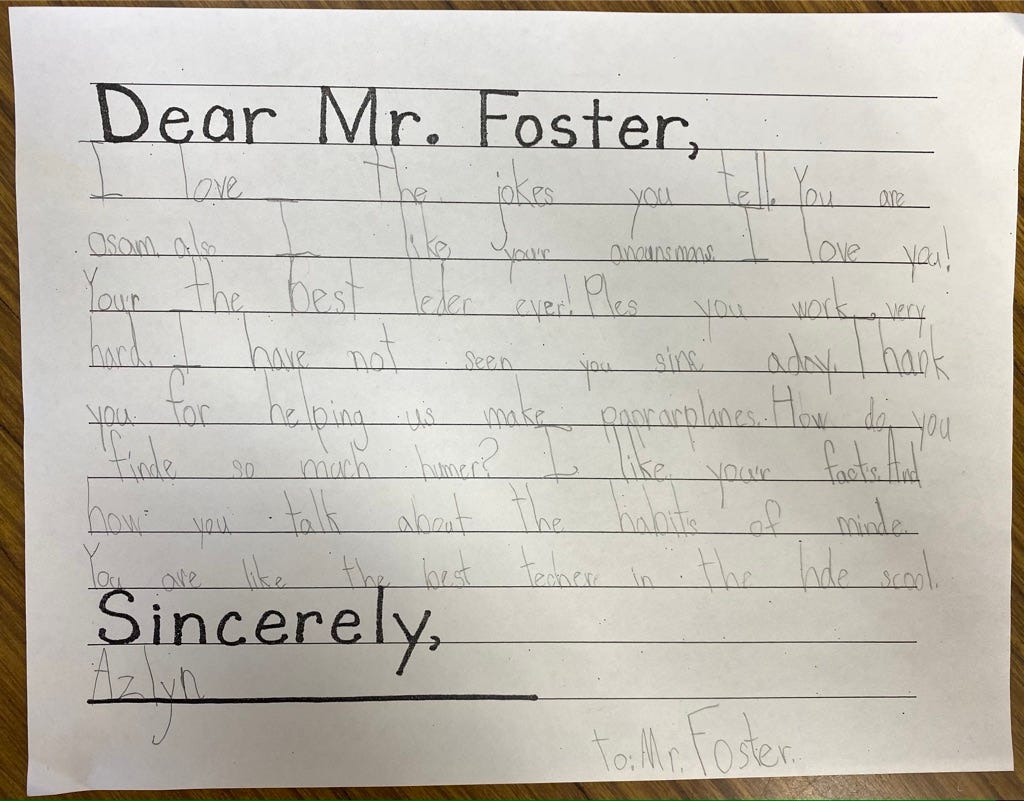 Dear Mr. Foster,
I love the jokes you tell. You are
osam. also I like your anounsmons. I love you!
Your the best leder ever! Ples you work very
hard. I have not seen you sinc aday. Thank
you for helping us make paprarplanes. How do you
finde so much humer? I like your facts. And
how you talk about the habits of minde.
You are like the best techer in the hde scool.
Sincerely,
Azlyn
to: Mr. Foster.